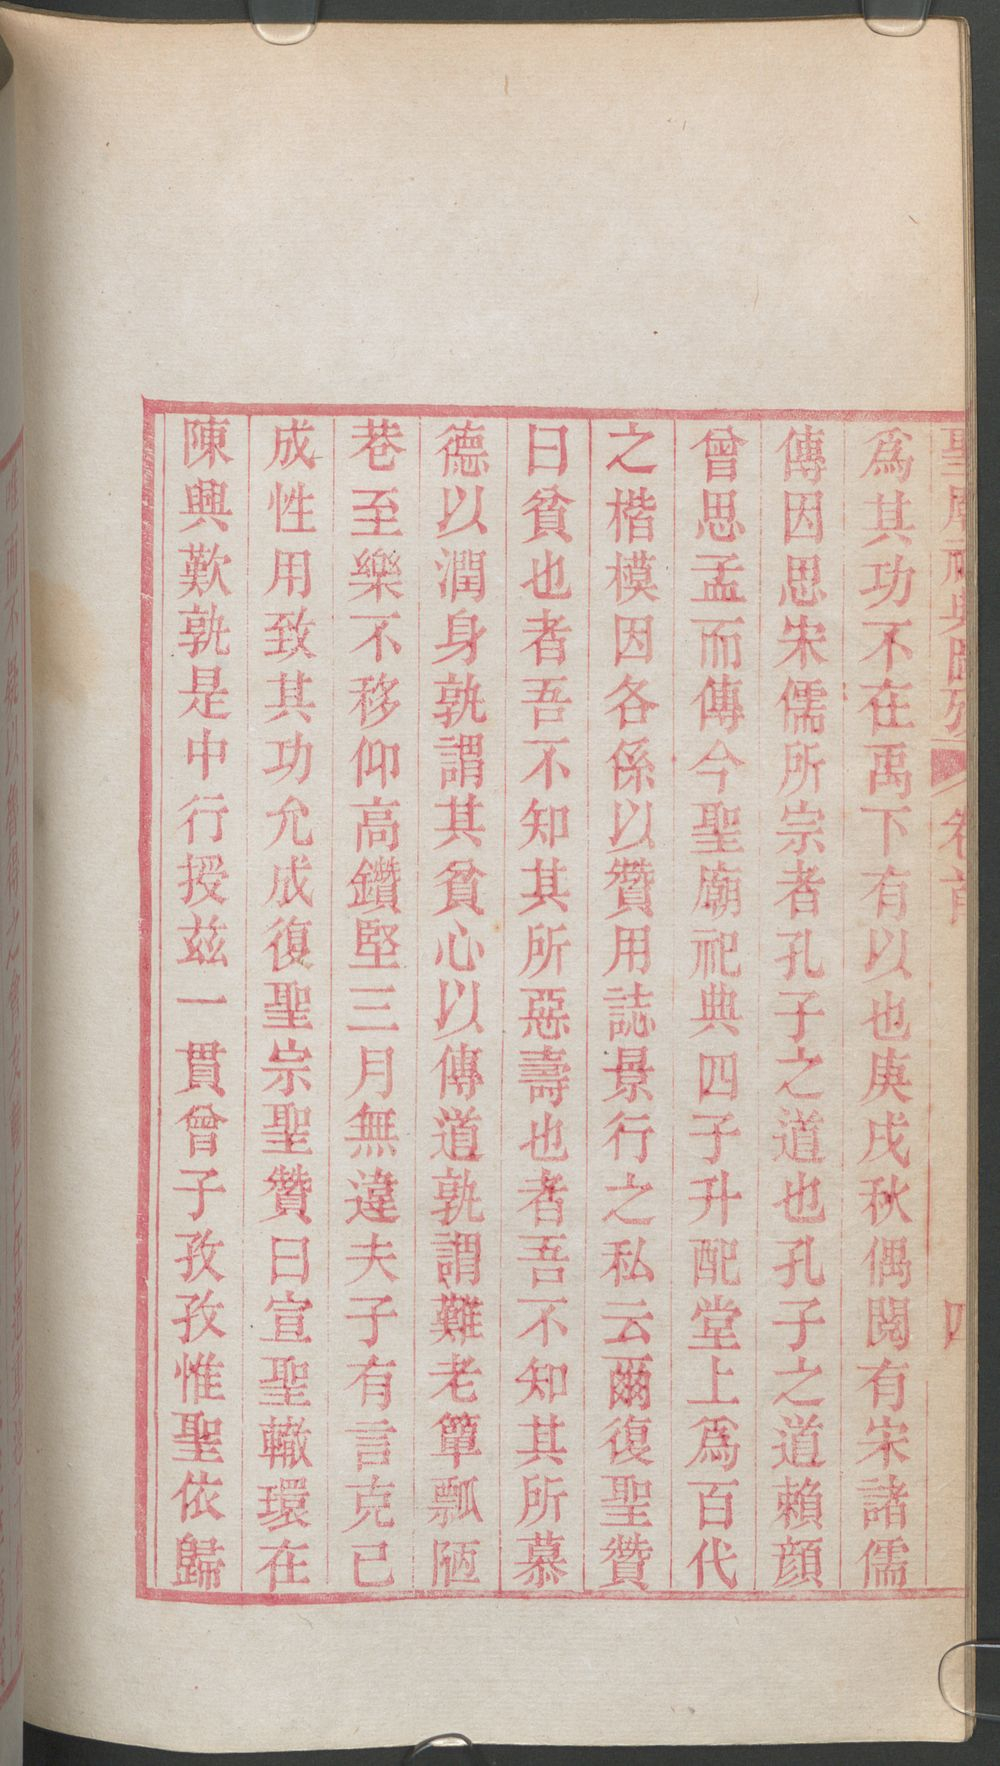 聖廟祀典圖攷 卷首 四
爲其功不在禹下有以也庚戌秋偶閱有宋諸儒
傳因思宋儒所宗者孔子之道也孔子之道賴顔
曾思孟而傳今聖廟祀典四子升配堂上爲百代
之楷模因各係以贊用誌景行之私云爾復聖贊
曰貧也者吾不知其所惡壽也者吾不知其所慕
德以潤身孰謂其貧心以傳道孰謂難老簞瓢陋
巷至樂不移仰高鑽堅三月無違夫子有言克己
成性用致其功允成復聖宗聖贊曰宣聖轍環在
陳興歎孰是中行授兹一貫曾子孜孜惟聖依歸